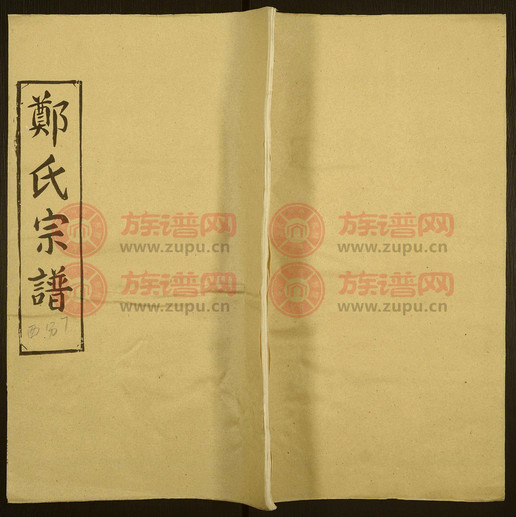 鄭氏宗譜
族谱网
www.zupu.cn
族谱网
www.zupu.cn
族谱网
www.zupu.cn
族谱网
www.zupu.cn